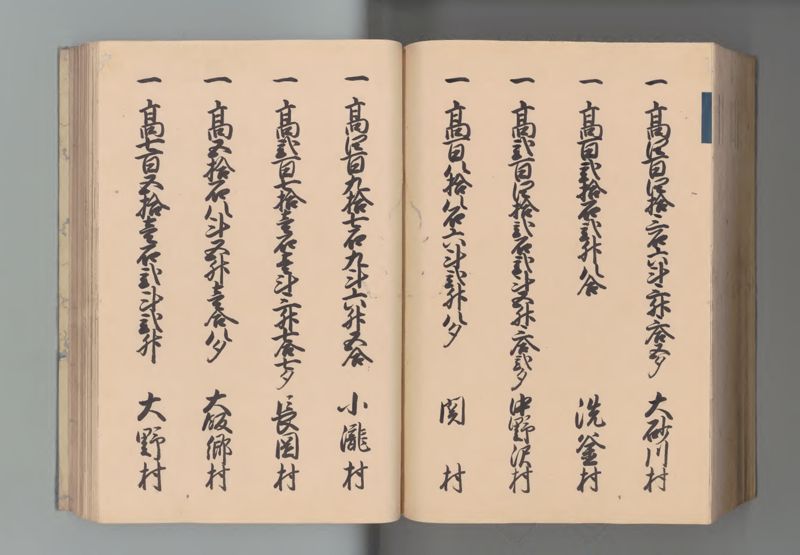 一 高四百四拾三石六斗三升三合五夕 大砂川村
一 高百弐拾石弐升八合 洗釜村
一 高弐百四拾弐石弐斗五升三合弐夕 中野沢村
一 高百八拾八石六斗弐升八夕 関村
一 高四百九拾七石九斗六升五合 小瀧村
一 高弐百七拾壱石壱斗三升七合七夕 長岡村
一 高五拾石八斗五升壱合八夕 大飯郷村
一 高七百五拾壱石弐斗弐升 大野村